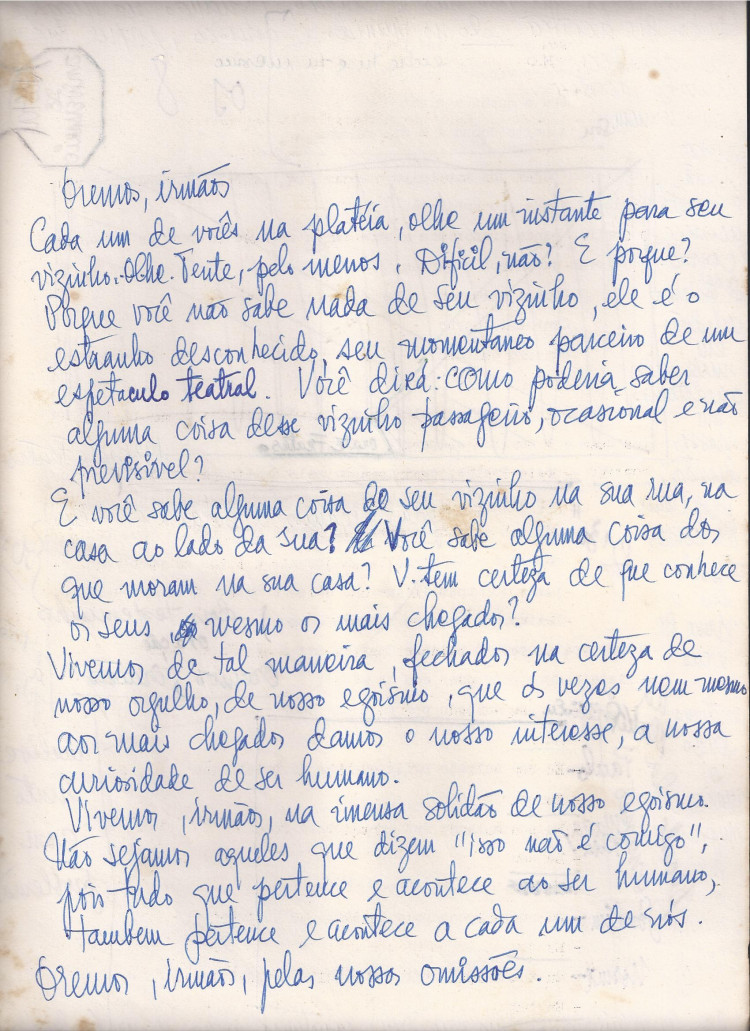 Oremos, irmãos
Cada um de vocês na platéia, olhe um instante para seu
vizinho. Olhe. Tente, pelo menos. Dificil, não? E porque?
Porque você não sabe nada de seu vizinho, ele é o
estranho desconhecido, seu momentaneo parceiro de um
espetaculo teatral. Você dirá: como poderia saber
alguma coisa desse vizinho passageiro, ocasional e não
previsivel?
E você sabe alguma coisa de seu vizinho na sua rua, na
casa ao lado da sua? Você sabe alguma coisa dos
que moram na sua casa? V. tem certeza de que conhece
os seus, mesmo os mais chegados?
Vivemos de tal maneira, fechados na certeza de
nosso orgulho, de nosso egoismo, que ás vezes nem mesmo
aos mais chegados damos o nosso interesse, a nossa
curiosidade de ser humano.
Vivemos, irmãos, na imensa solidão de nosso egoismo.
Não sejamos aqueles que dizem "isso não é comigo",
pois tudo que pertence e acontece ao ser humano,
tambem pertence e acontece a cada um de nós.
Oremos, irmãos, pelas nossas omissões.